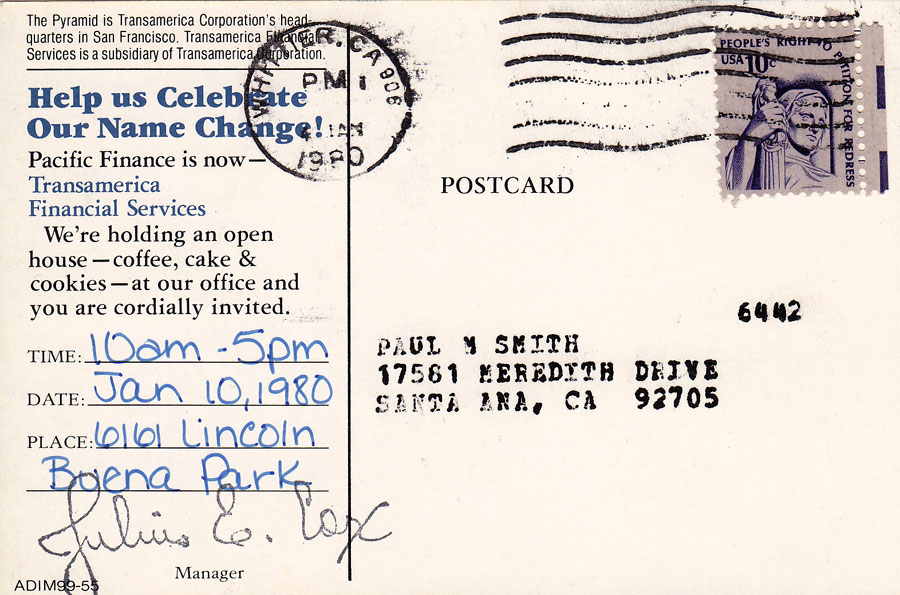 The Pyramid is Transamerica Corporation's head-
quarters in San Francisco. Transamerica Financial
Services is a subsidiary of Transamerica Corporation.
Help us Celebrate
Our Name Change!
Pacific Finance is now—
Transamerica
Financial Services
We're holding an open
house—coffee, cake &
cookies—at our office and
you are cordially invited.
TIME: 10am - 5pm
DATE: Jan 10, 1980
PLACE: 6161 Lincoln
Buena Park
Julius E. Cox
Manager
ADIM99-55
WHITTIER, CA 906
PM
JAN
1980
PEOPLE'S RIGHT TO PETITION FOR REDRESS
USA 10c
POSTCARD
6442
PAUL M SMITH
17581 MEREDITH DRIVE
SANTA ANA, CA 92705